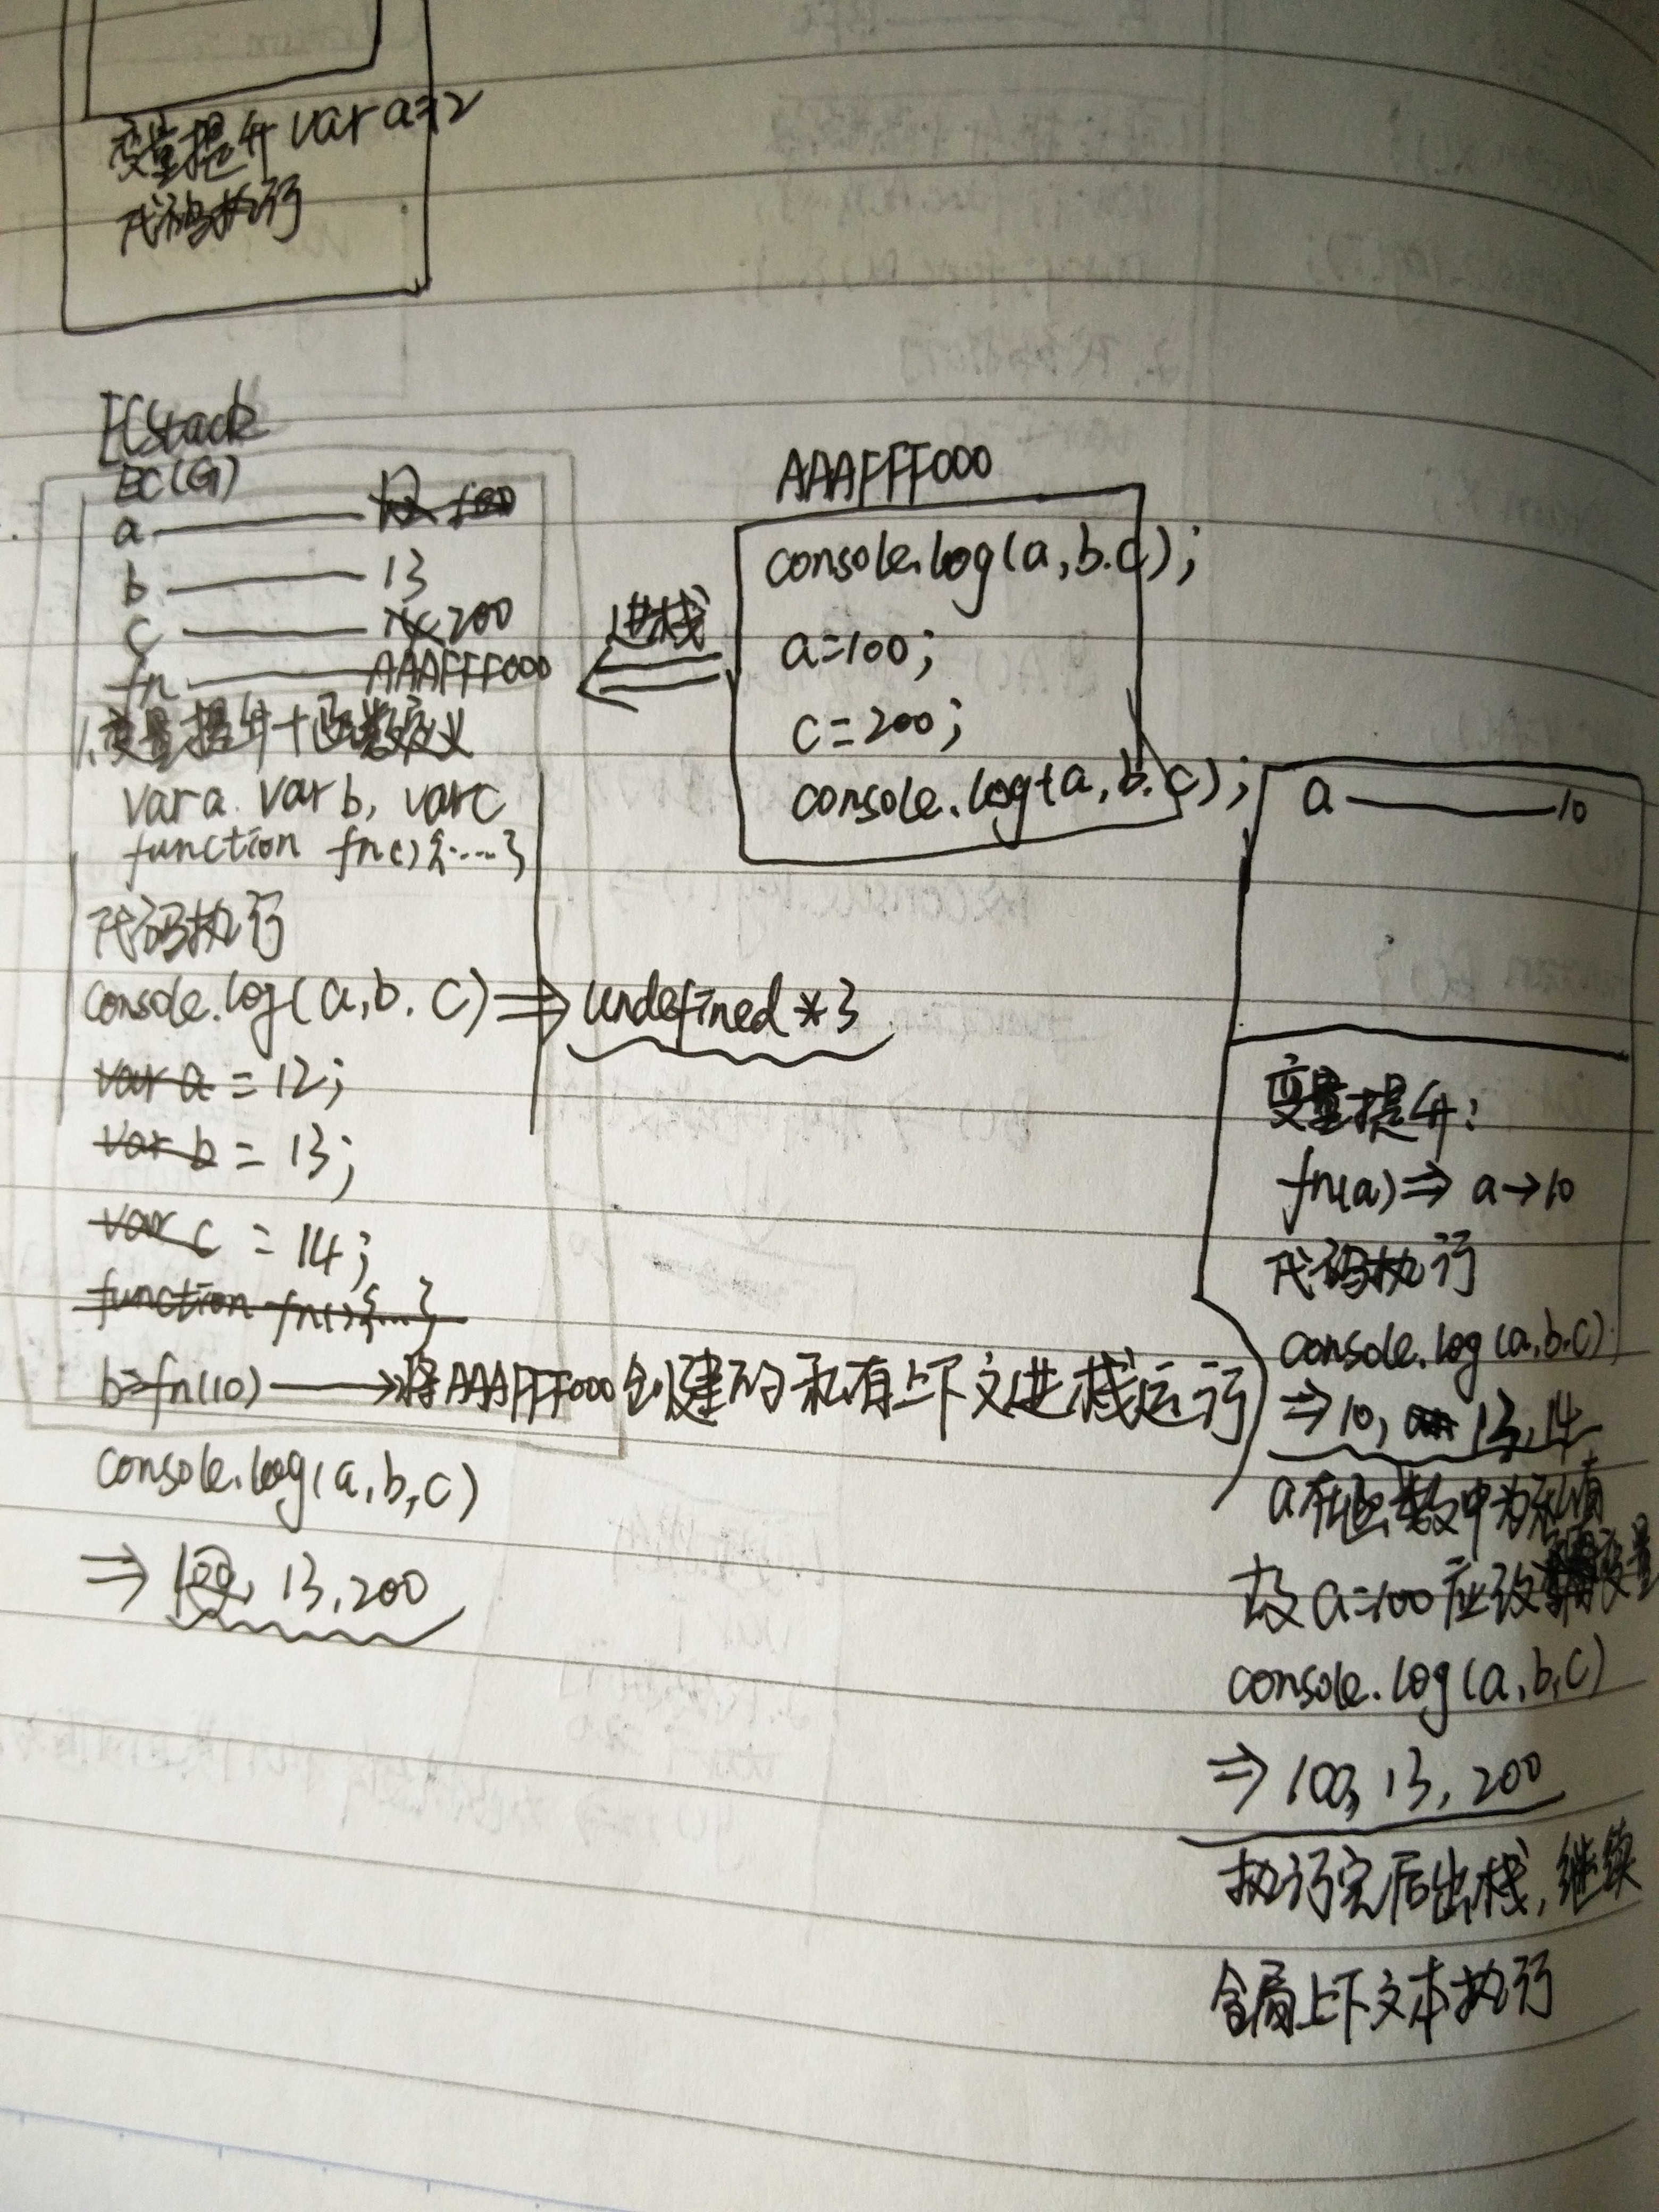 变量提升 var a=12
代码执行
ECStack
EC(G)
a
b 13
c 200
fn AAAFFF000
1.变量提升+函数定义
var a. var b, var c
function fn(){....}
代码执行
console.log(a,b.c) ⇒ undefined*3
var a = 12;
var b = 13;
var c = 14;
function fn(){...}
b=fn(10) → 将AAAFFF000创建的私有上下文进栈运行
console.log(a,b,c)
⇒ 13,200
AAAFFF000
console.log(a,b.c);
a=100;
c=200;
console.log(a,b.c);
进栈
a 10
变量提升:
fn(a)⇒ a→10
代码执行
console.log(a,b.c)
⇒10, 13,14
a在函数中为私有
故a=100应改变量
console.log(a,b,c)
⇒ 100,13,200
执行完后出栈,继续
全局上下文本执行